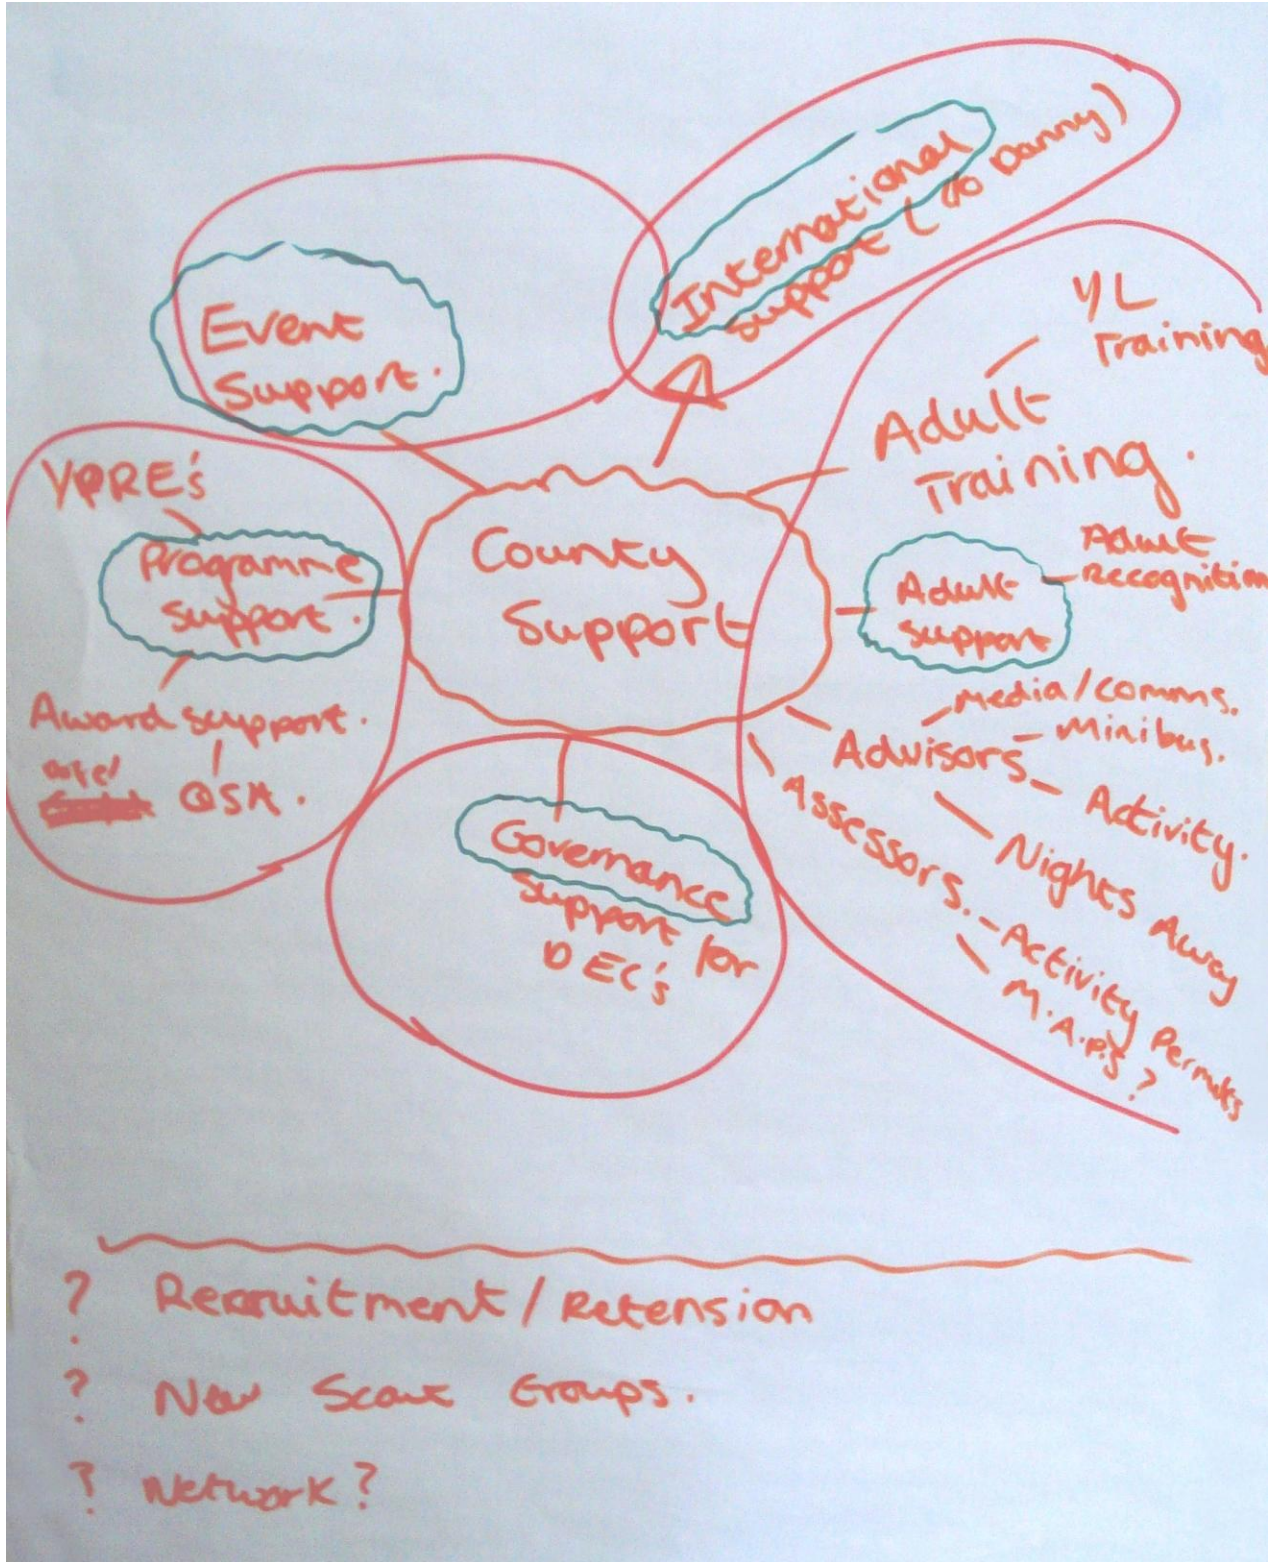 International
support ( do Danny)
Event
Support.
YL
Training
Adult
Training.
YPRE's
Programme
support.
County
Support
Adult
recognition
Adult
support
Award support.
QSA.
Media/comms.
Minibus.
Advisors
Activity.
Nights Away
Assessors.
Activity Permits
M.A.P.s?
Governance
support for
DEC's
? Recruitment/Retension
? New Scout Groups.
? Network?